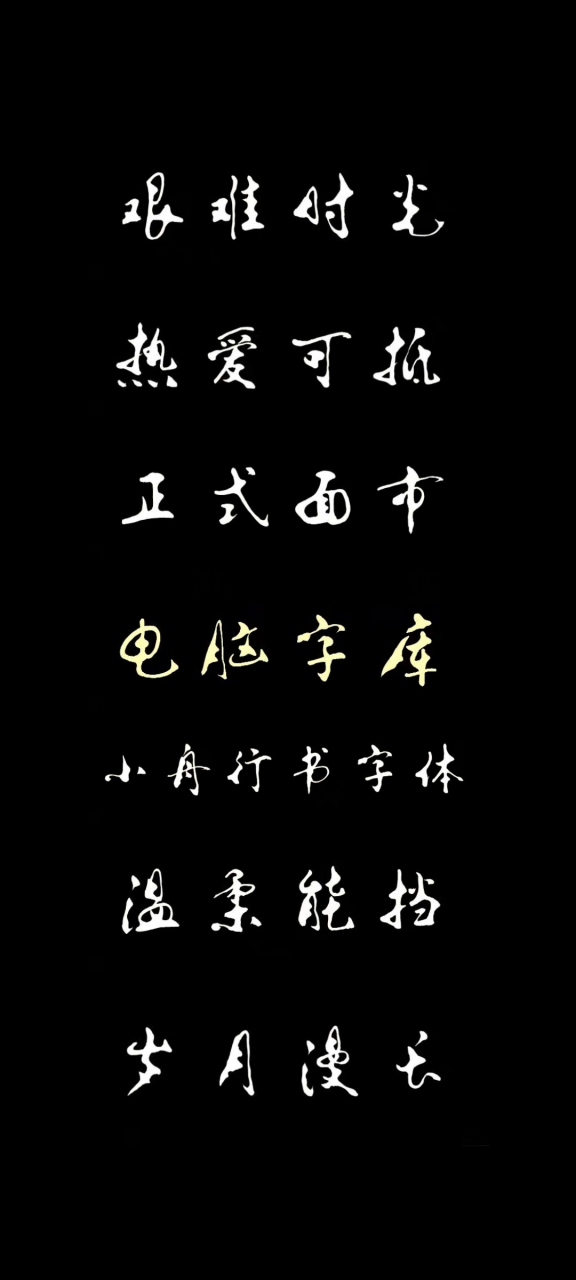 艰难时光
热爱可抵
正式面市
电脑字库
小舟行书字体
温柔能挡
岁月漫长